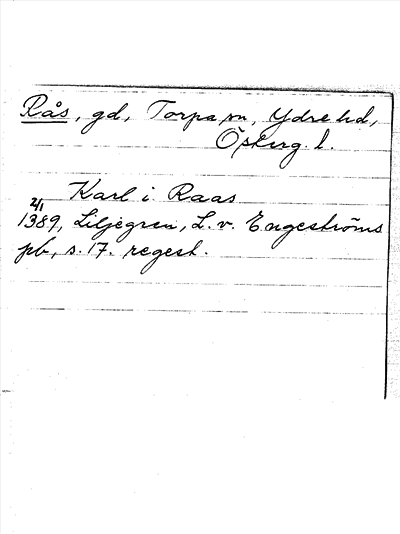 Rås, gd, Torpa sn, Ydre hd,
Östergötl. l.
Karl i Raas
2/1
1389, Liljegren, L. v. Engeströms
pb, s. 17. regest.